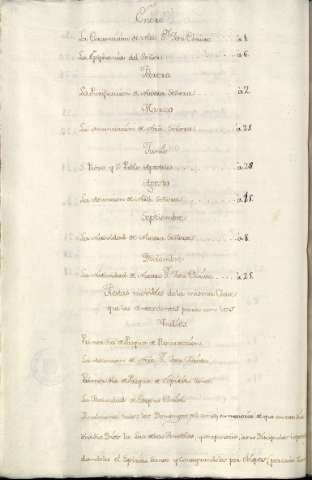 Enero
La Circuncision de Ntro. Sr. Jesu Christo à 1.
La Epiphania del Señor à 6.
Febrero
La Purificacion de Nuestra Señora à 2.
Marzo
La Anunciacion de Ntra. Señora à 25.
Junio
S. Pedro y S. Pablo Apostoles à 29
Agosto
La Asuncion de Ntra. Señora à 15.
Septiembre
La Natividad de Nuestra Señora à 8.
Diciembre
La Natividad de Nuestro Sr. Jesu Christo à 25.
Fiestas movibles de la misma Clase
que las antecedentes para con los
Indios
Primer dia de Pasqua de Resurreccion.
La Ascension de Ntro. Sr. Jesu Christo.
Primer dia de Pasqua de Espiritu Santo.
La Festividad de Corpus Christi.
Finalmente todos los Domingos del año en memoria de que en este dia
Dios la luz à los Apostoles,
el Espiritu Santo y